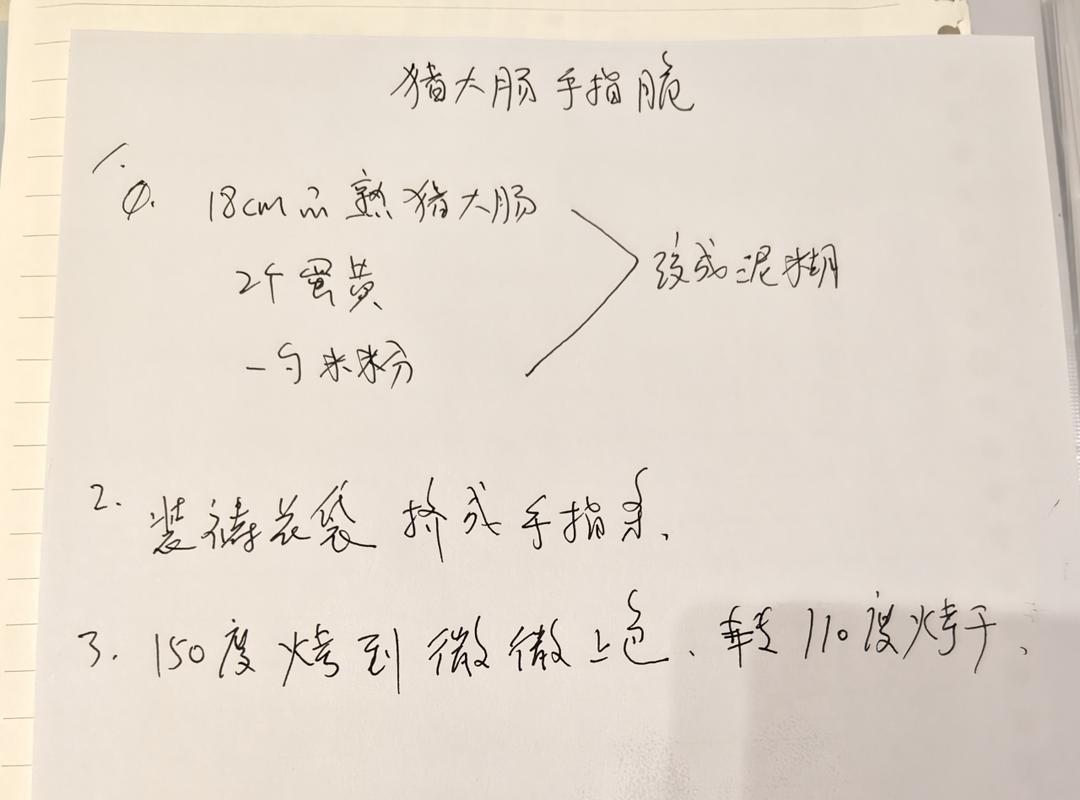 猪大肠手指脆
1.
18cm的熟猪大肠
2个蛋黄
绞成泥糊
一勺米粉
2. 装裱花袋 挤成手指条、
3. 150度烤到微微上色、转110度烤干、